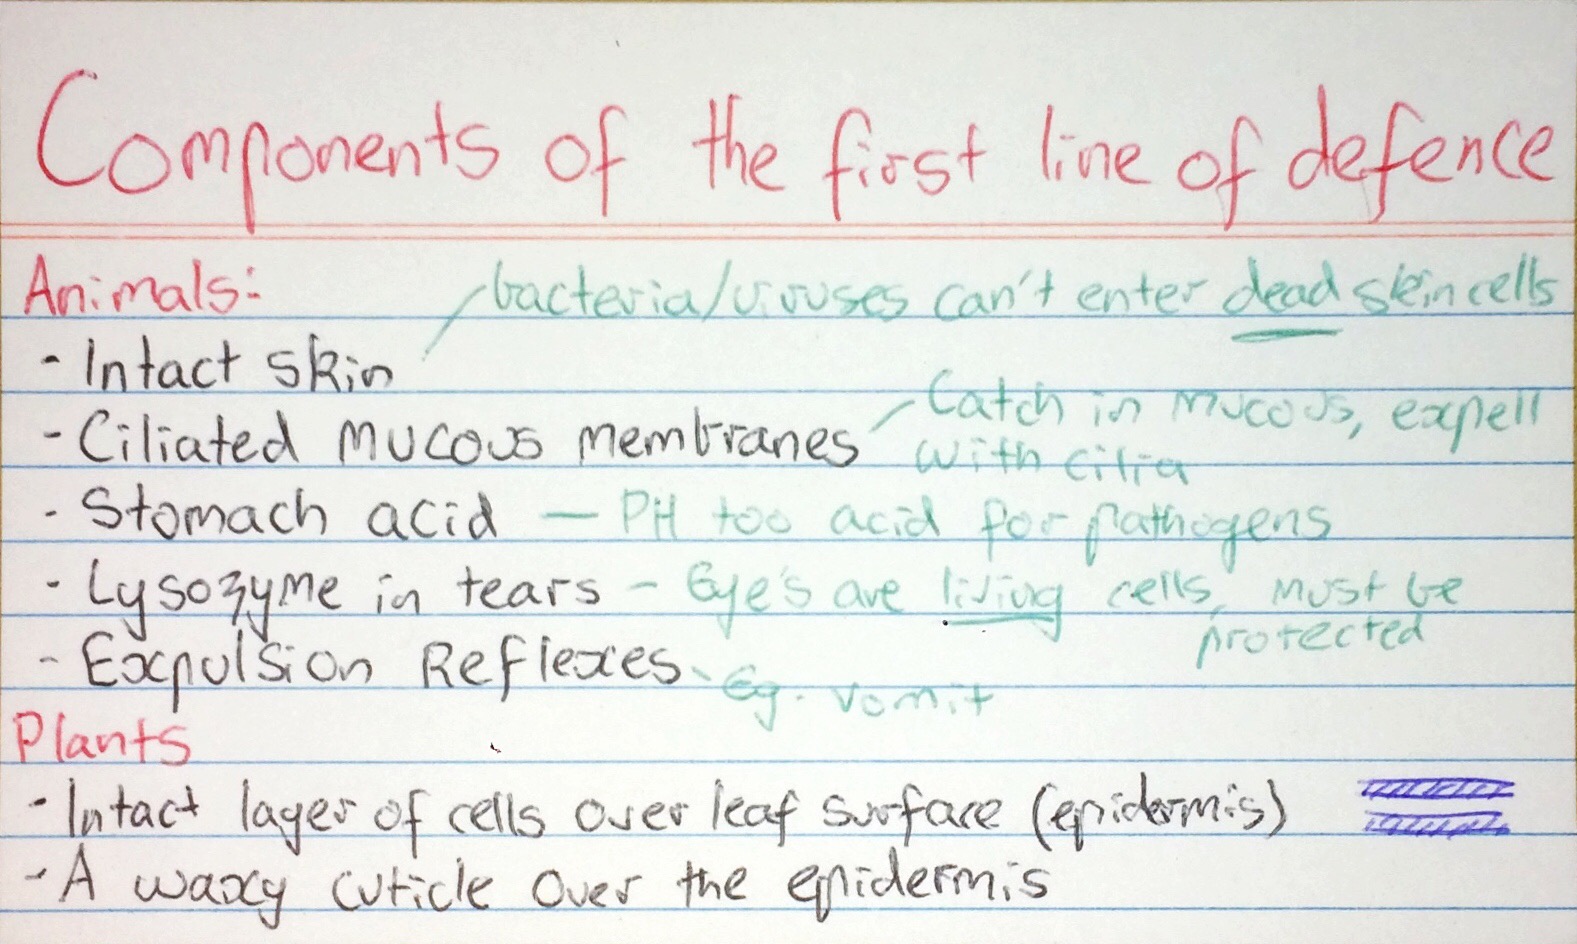 Components of the first line of defence
Animals:
bacteria/viruses can't enter dead skin cells
- Intact skin
- Ciliated mucous membranes
Catch in mucous, expell
with cilia
- Stomach acid — PH too acid for pathogens
- Lysozyme in tears - Eye's are living cells, must be
protected
- Expulsion Reflexes - Eg. vomit
Plants
- Intact layer of cells over leaf surface (epidermis)
- A waxy cuticle over the epidermis